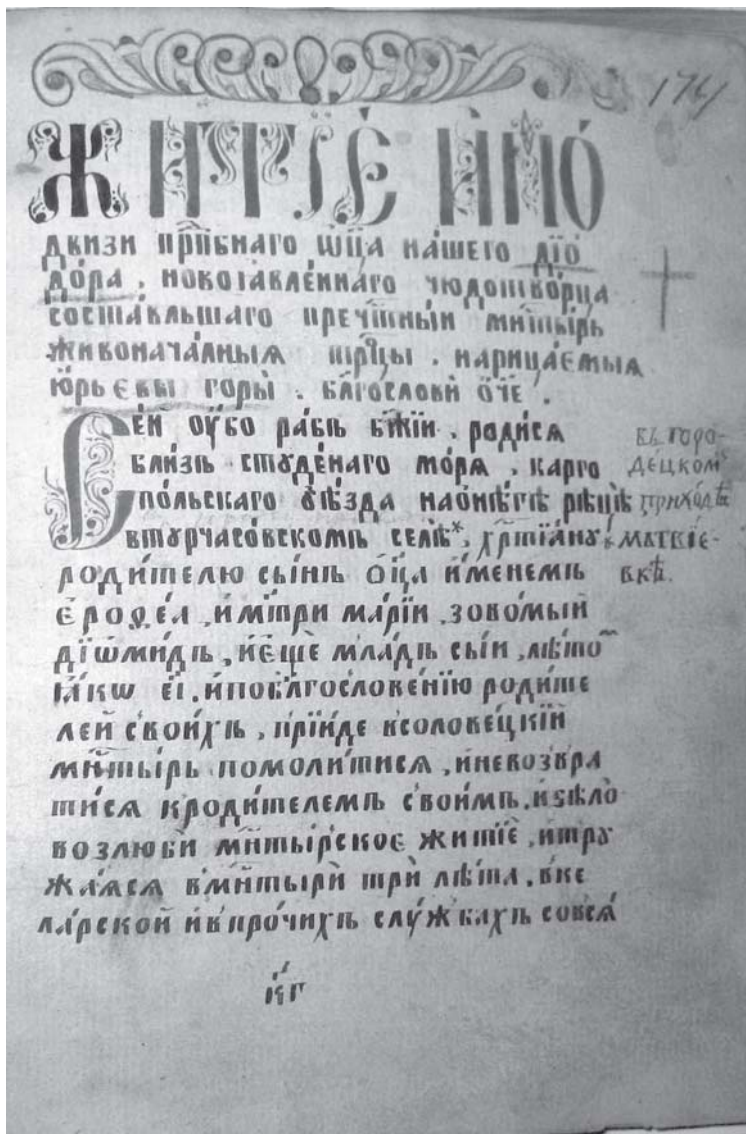 174
ЖИТІЕ́ И҆ПО́
дви́зи прп҃бнаго ѡ҆ц҃а на́шего дїѡ
до́ра, новоꙗвле́ннаго чюдотво́рца
соста́вльшаго пречⷭ҇тны́й мн҃ты́рь
живонача́лныѧ трⷪ҇цы. нарица́емыѧ
ю҆́рьєвы горы̀. бл҃гословѝ ѻ҆́ч҃е.
Се́й ᲂу҆́бо ра́бъ бж҃їи, роди́сѧ
бли́зь студе́наго мо́рѧ, карго
по́льскаго ᲂу҆ѣ́зда наѻ҆нѣ́гѣ рѣцѣ̀
втꙋрчасо́вскомъ селѣ̀*, хрⷭ҇тїа́нꙋ
роди́телю сы́нъ ѻ҆ц҃а̀ и҆́менемъ
є҆роѳе́ѧ, и҆мт҃ри мари́и, зово́мый
дїѡми́дъ, и҆є҆щѐ мла́дъ сы́и, лѣ́тоⷨ
ꙗ҆́кѡ є҃і, и҆побл҃гослове́нїю роди́те
лей свои́хъ, прїи́де всолове́цкїй
мн҃ты́рь помоли́тисѧ, и҆невозвра
ти́сѧ кроди́телемъ свои́мъ, и҆ѕѣло̀
возлюбѝ мн҃ты́рское житїѐ, и҆трꙋ
жа́ѧсѧ вмн҃тырѝ трѝ лѣ́та, вке
ла́рской и҆впро́чихъ слꙋ́жбахъ совсѧ́
к҃г
въ горо-
де́цкомъ
прихо́дѣ
* матвѣе-
вкѣ.